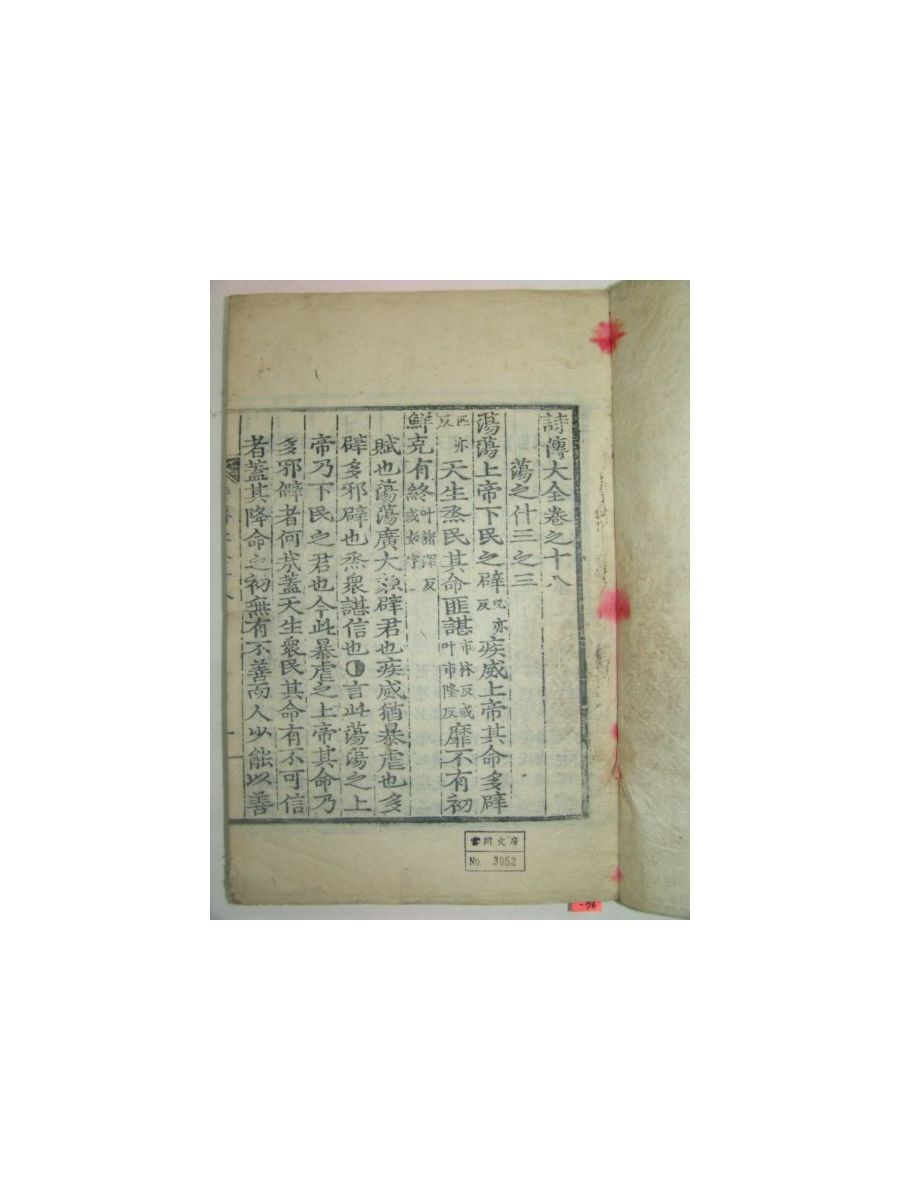 詩傳大全卷之十八
蕩之什三之三
蕩蕩上帝下民之辟必亦反疾威上帝其命多辟
匹亦反天生烝民其命匪諶市林反或叶市隆反靡不有初
鮮克有終叶諸深反或如字
賦也蕩蕩廣大貌辟君也疾威猶暴虐也多
辟多邪辟也烝衆諶信也○言此蕩蕩之上
帝乃下民之君也今此暴虐之上帝其命乃
多邪僻者何㢤蓋天生衆民其命有不可信
者蓋其降命之初無有不善而人少能以善
雲川文庫
No. 3052
-76